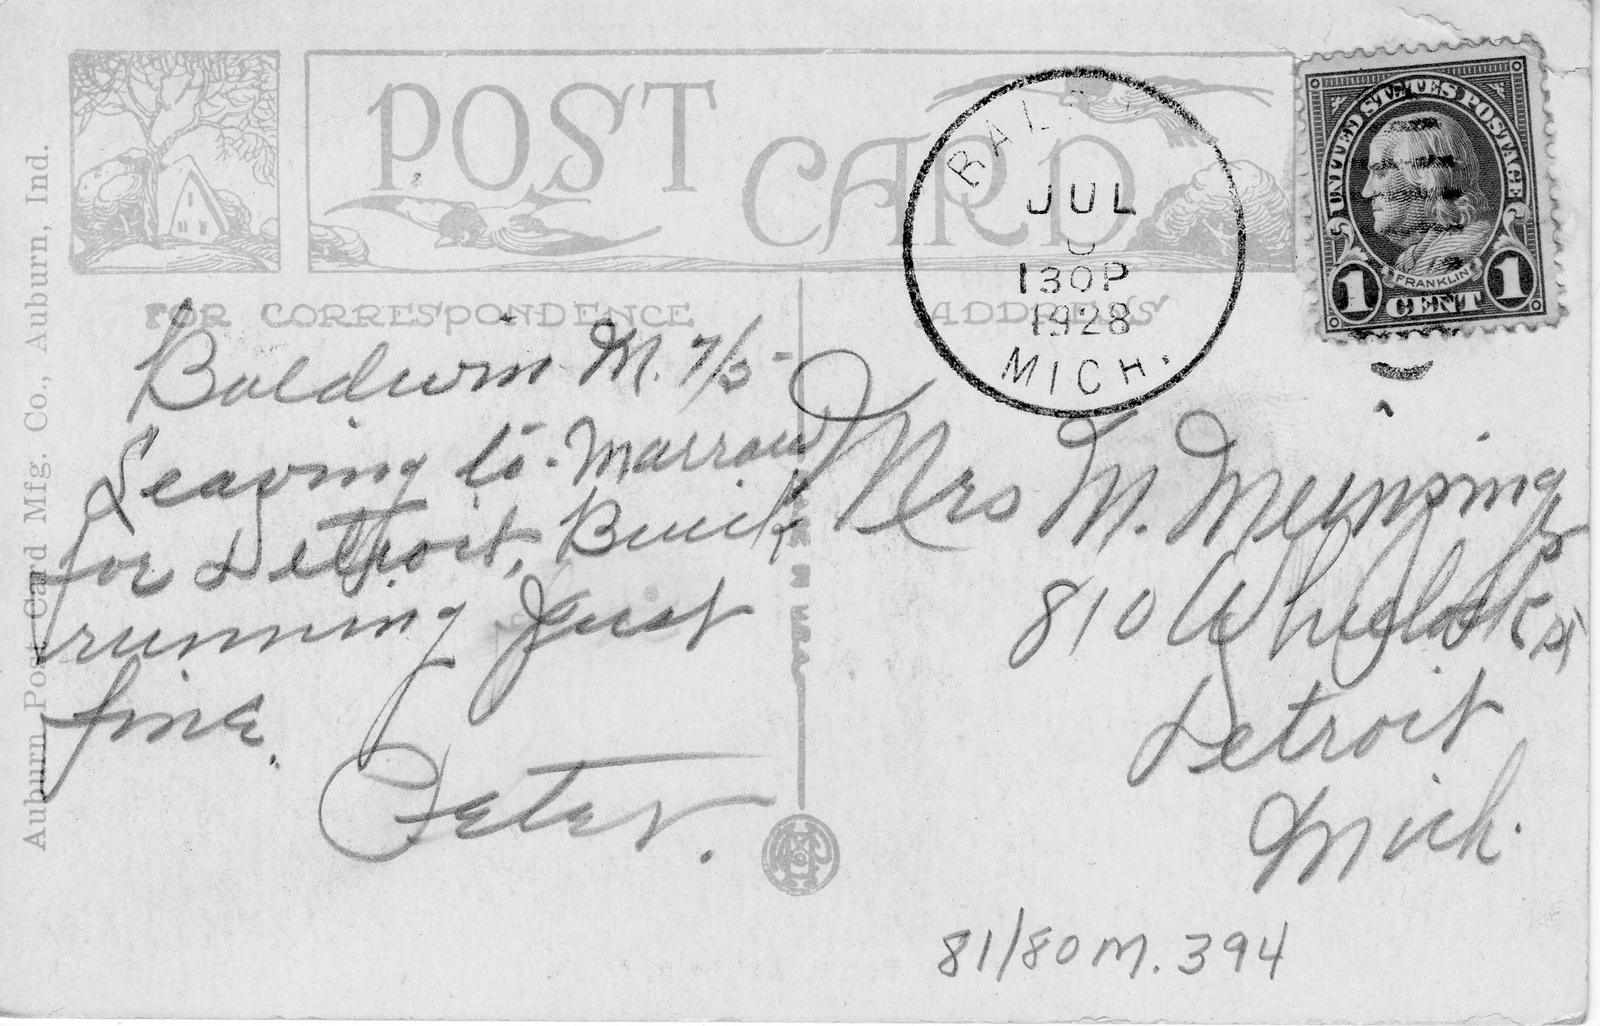 POST CARD
FOR CORRESPONDENCE
ADDRESS
JUL
130P
1928
MICH.
UNITED STATES POSTAGE
FRANKLIN
1 CENT 1
Auburn Post Card Mfg. Co., Auburn, Ind.
Baldwin M. 7/5-
Leaving to-marrow
for Detroit, Buick
running Just
fine.
Peter.
MADE IN USA
Mrs M.
810
Detroit
Mich.
81/80M.394